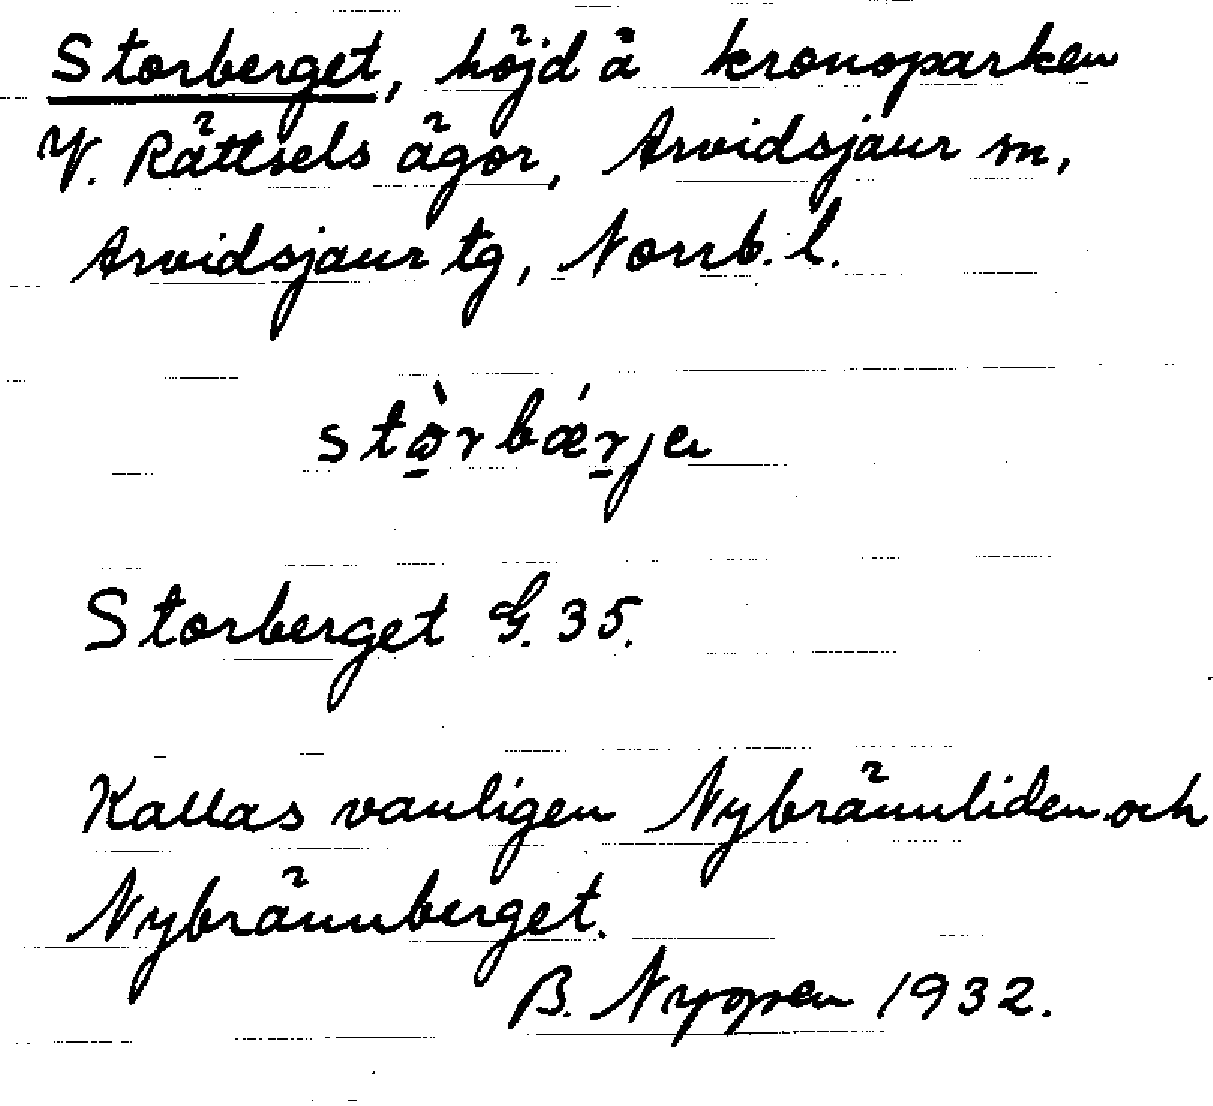 Storberget, höjd å kronoparken
V. Rättsels ägor, Arvidsjaur sn,
Arvidsjaur tg, Norrb. l.
Storberget G. 35.
Kallas vanligen Nybrännliden och
Nybrännberget.
B. Nyppen 1932.